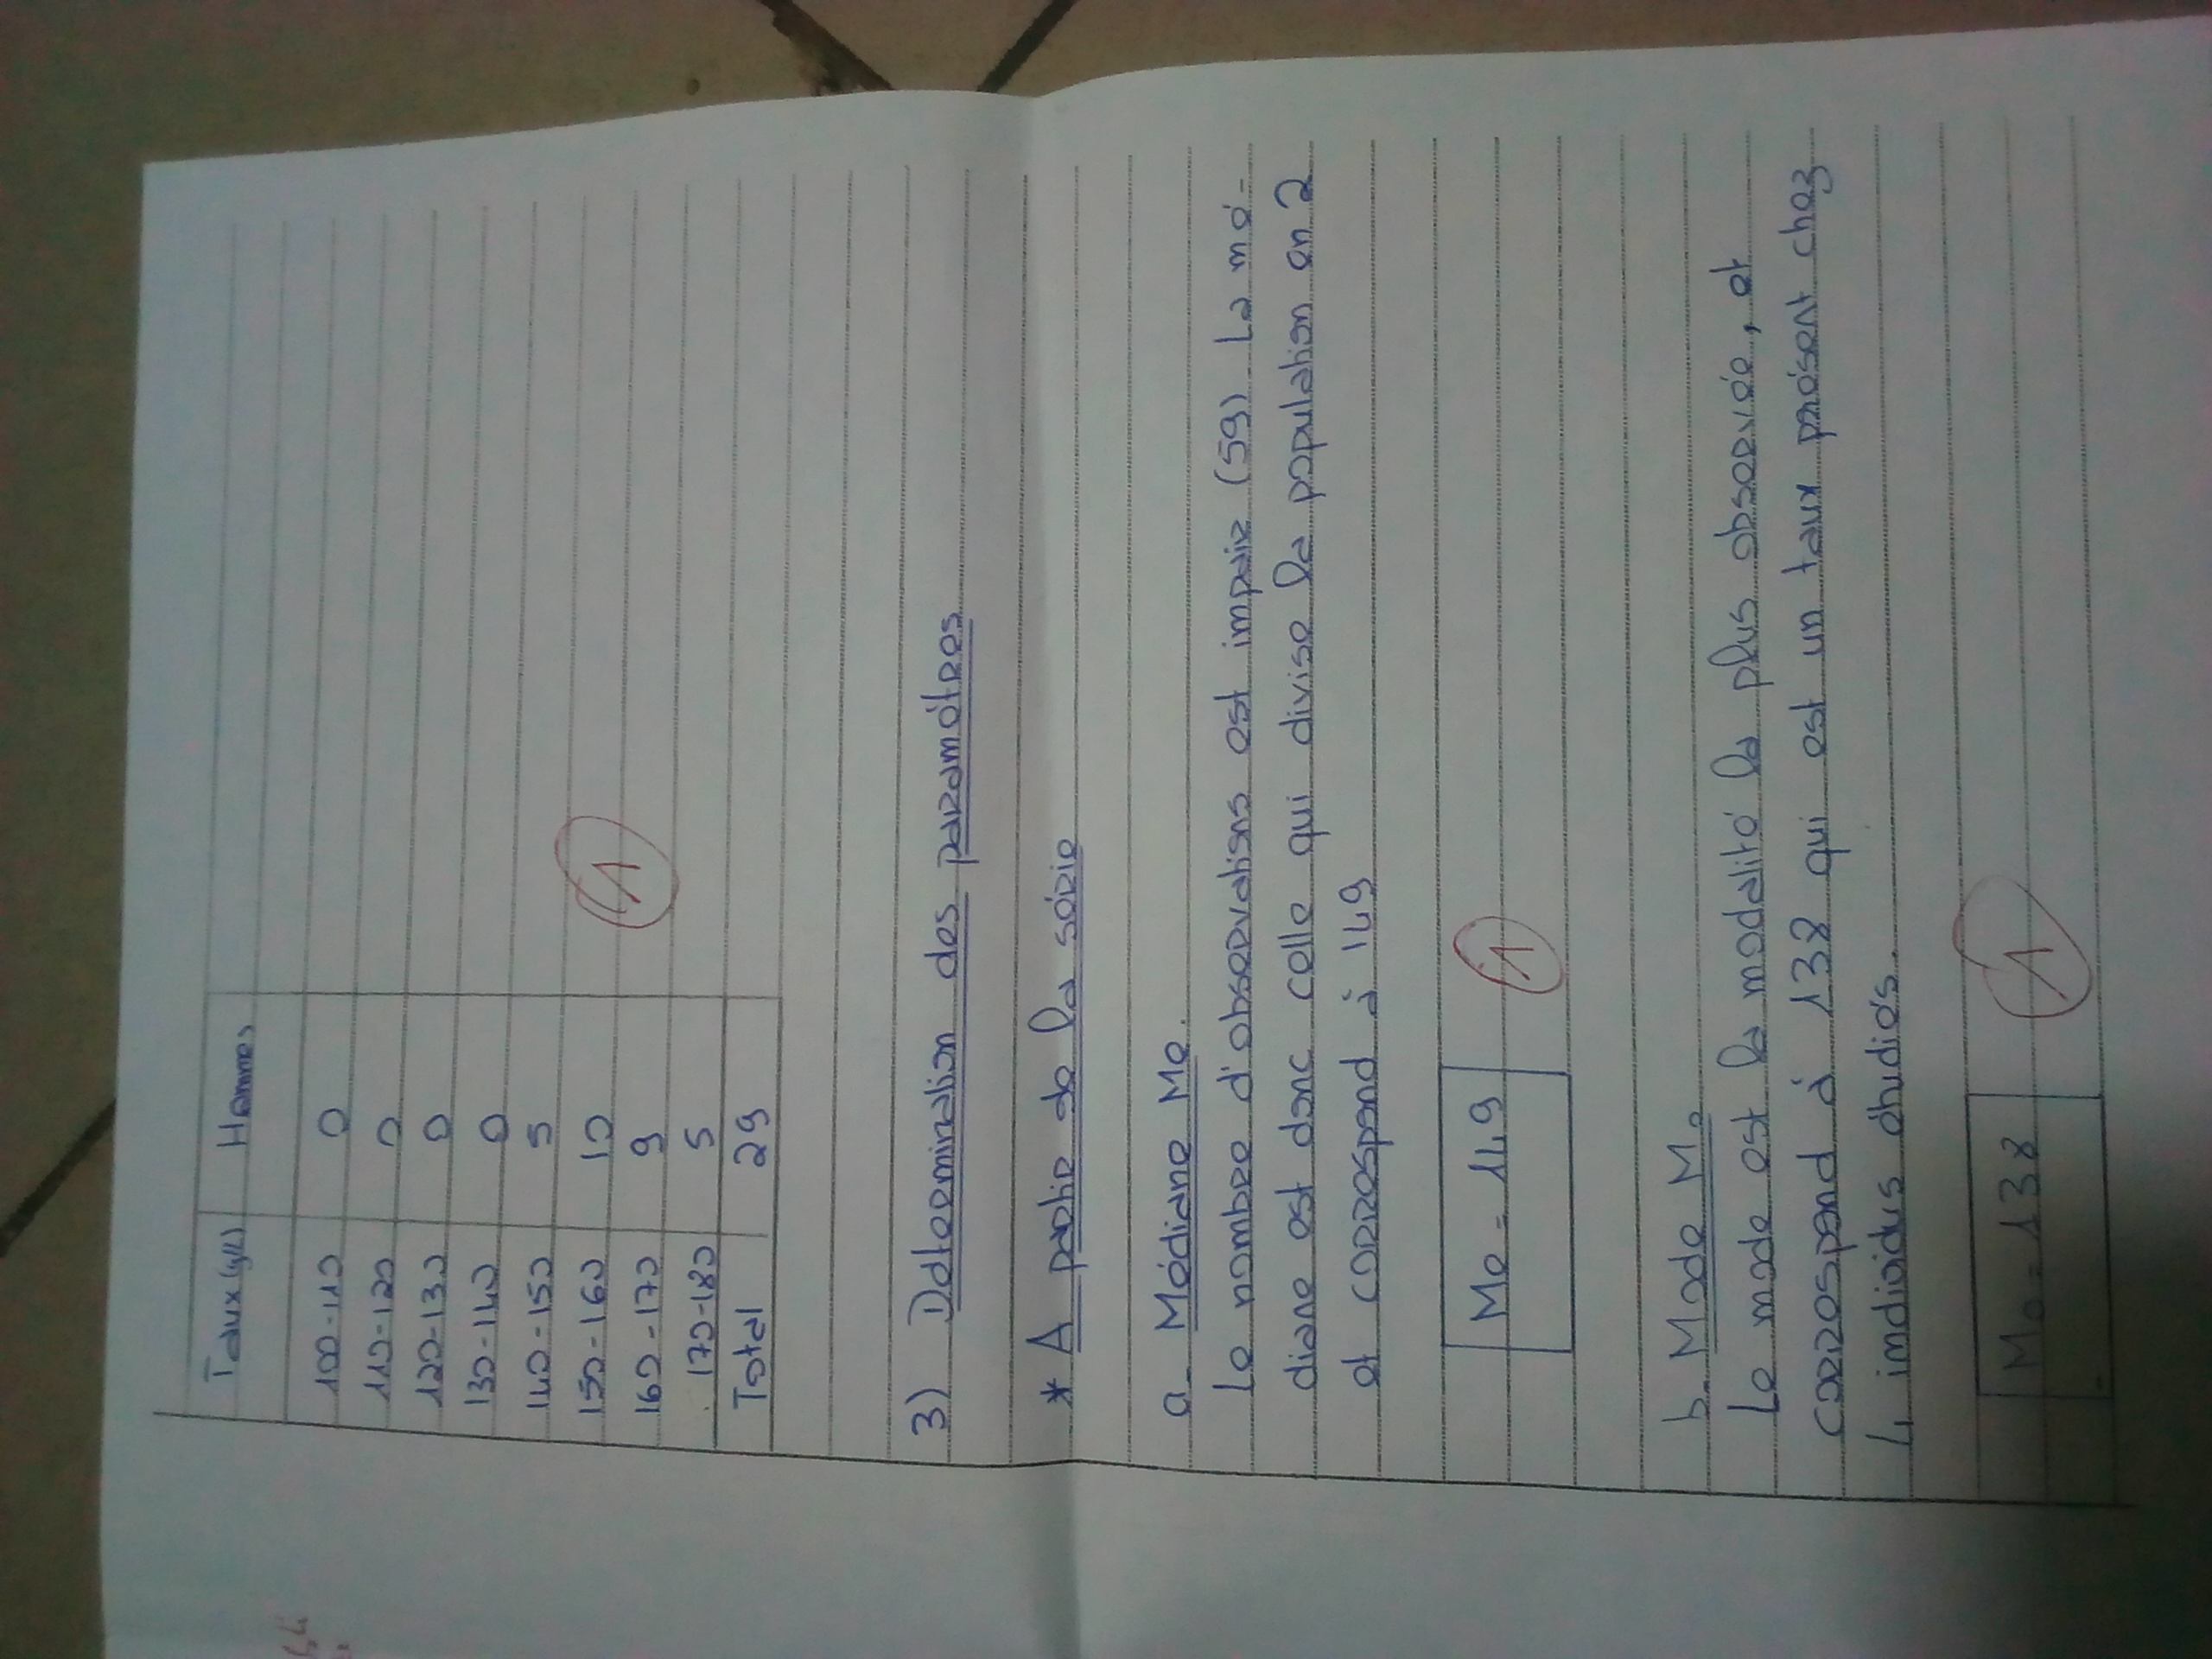 Taux (g/L) Hommes
100-110 0
110-120 0
120-130 0
130-140 0
140-150 5
150-160 10
160-170 9
170-180 5
Total 29
1
3) Détermination des paramètres
* A partir de la série
a- Médiane Me.
Le nombre d'observations est impair (59). La mé-
diane est donc celle qui divise la population en 2
et correspond à 149
Me = 149
1
b- Mode Mo
Le mode est la modalité la plus observée, et
correspond à 138 qui est un taux présent chez
4 individus étudiés.
Mo = 138
1